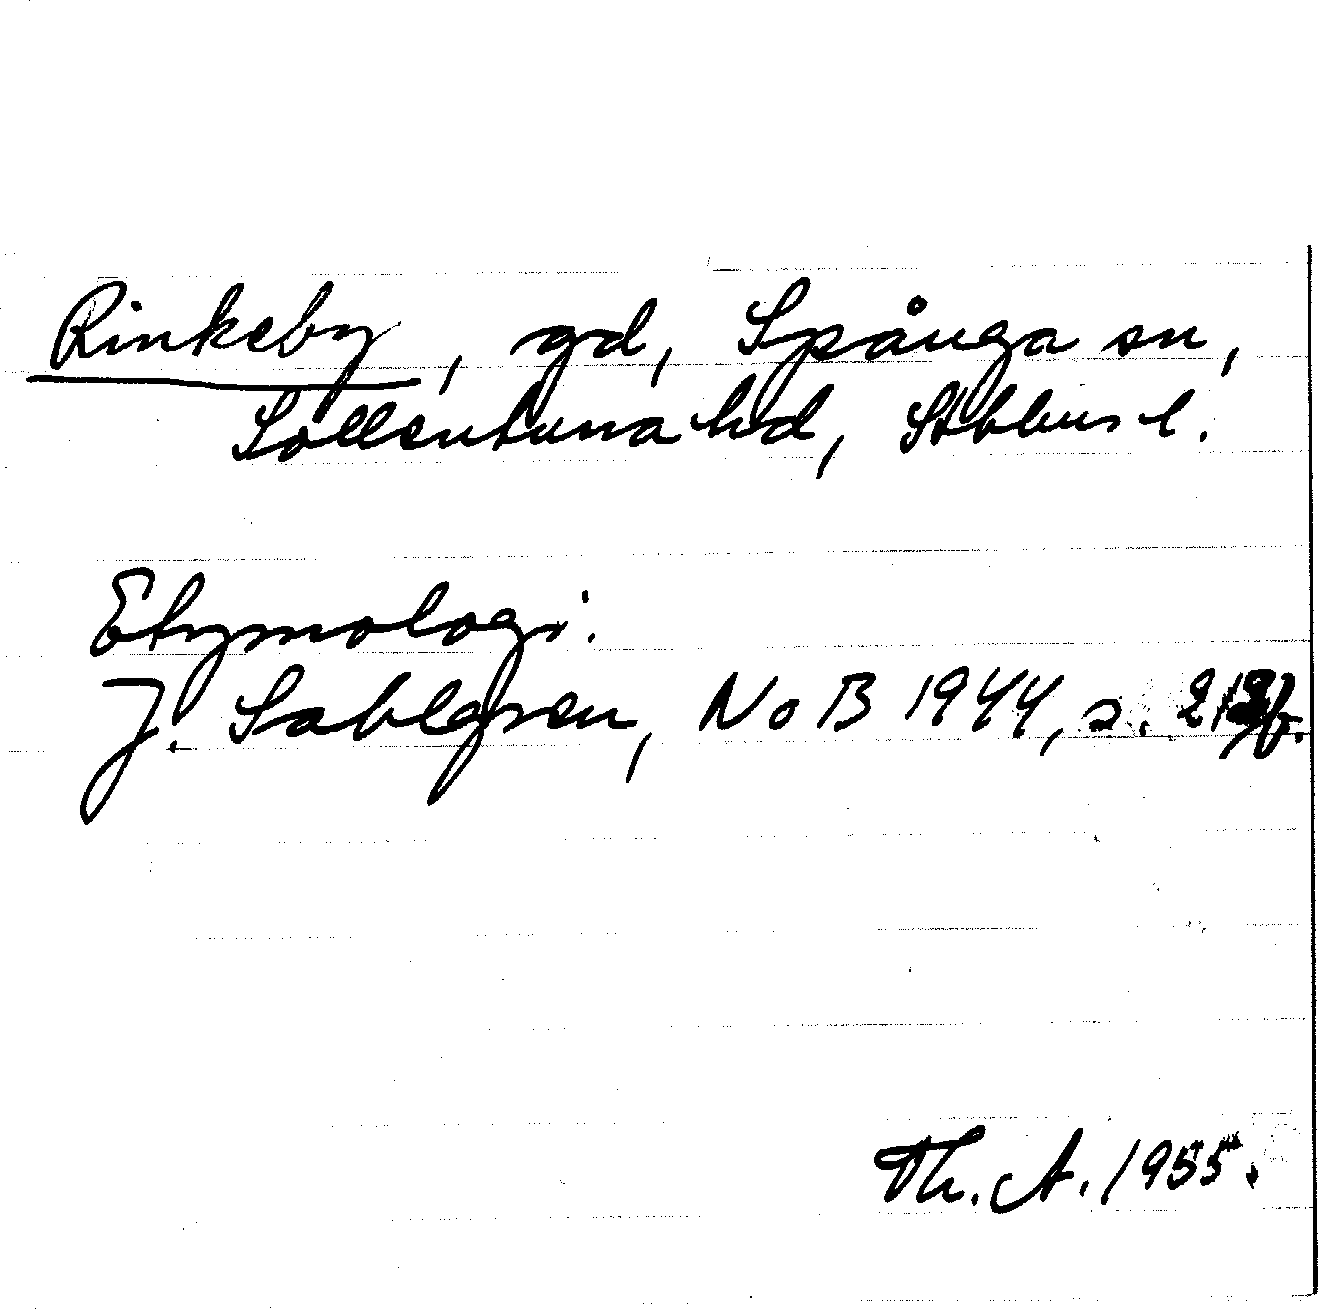 Rinkeby, gd, Spånga sn,
Sollentuna hd, Sthlms l.
Etymologi.
J. Sahlgren, NoB 1944, s.
Th. A. 1955.